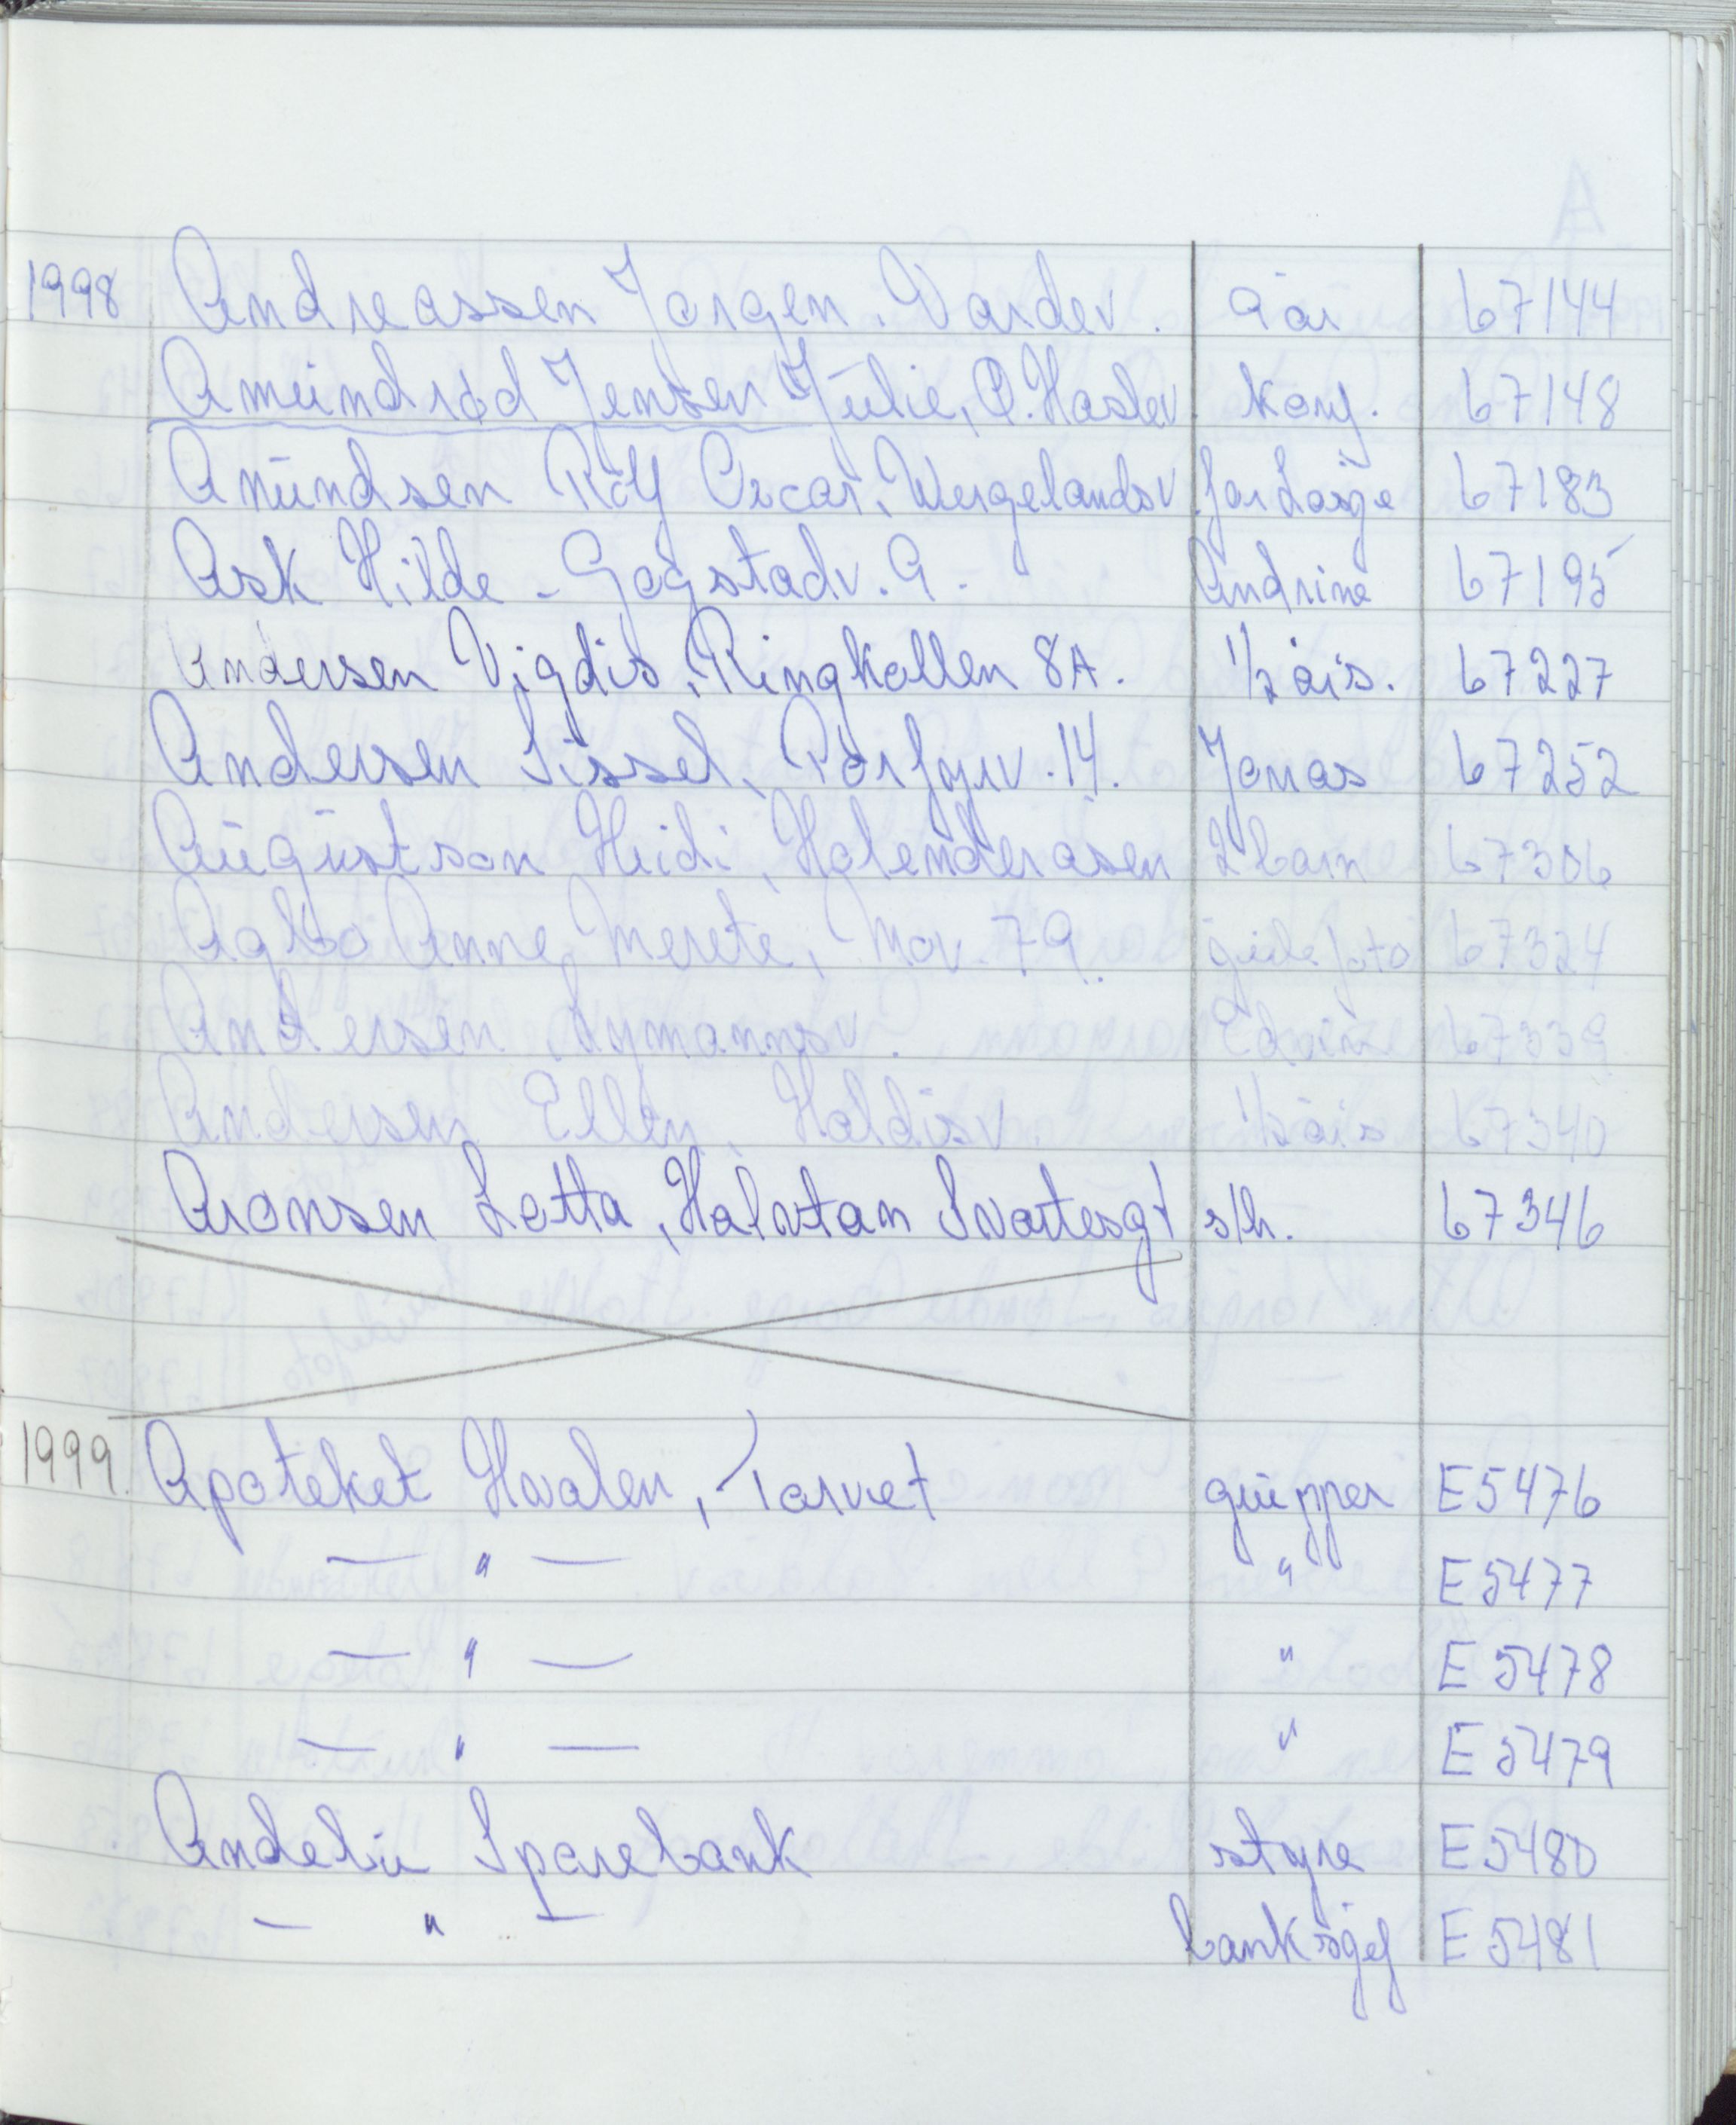 1998 Andreassen Jørgen. Vardev. 9 år 67144
Amundrød Jensen Julie, Ø. Haslev. konf. 67148
Amundsen Rolf Oscar, Wergelandsv. farkasje 67183
Ask Hilde - Gogstadv. 9. Andrine 67195
Andersen Vigdis, Ringkollen 8A. 1/2 års. 67227
Andersen Sissel, Porfyrv. 14. Jonas 67252
Augustson Heidi, Holenderåsen 2 barn 67306
Agbo Anne Merete, Mov. 79. gulefoto 67324
Andersen Nymannsv. Edvin 67339
Andersen Ellen, Haldisv. 1/2 års 67340
Aronsen Lotta, Halvtan Svartesgt s/h. 67346
1999. Apoteket Hvalen, Torvet grupper E5476
— " — " E5477
— " — " E5478
— " — " E5479
Andebu Sparebank styre E5480
— " — banksjef E5481